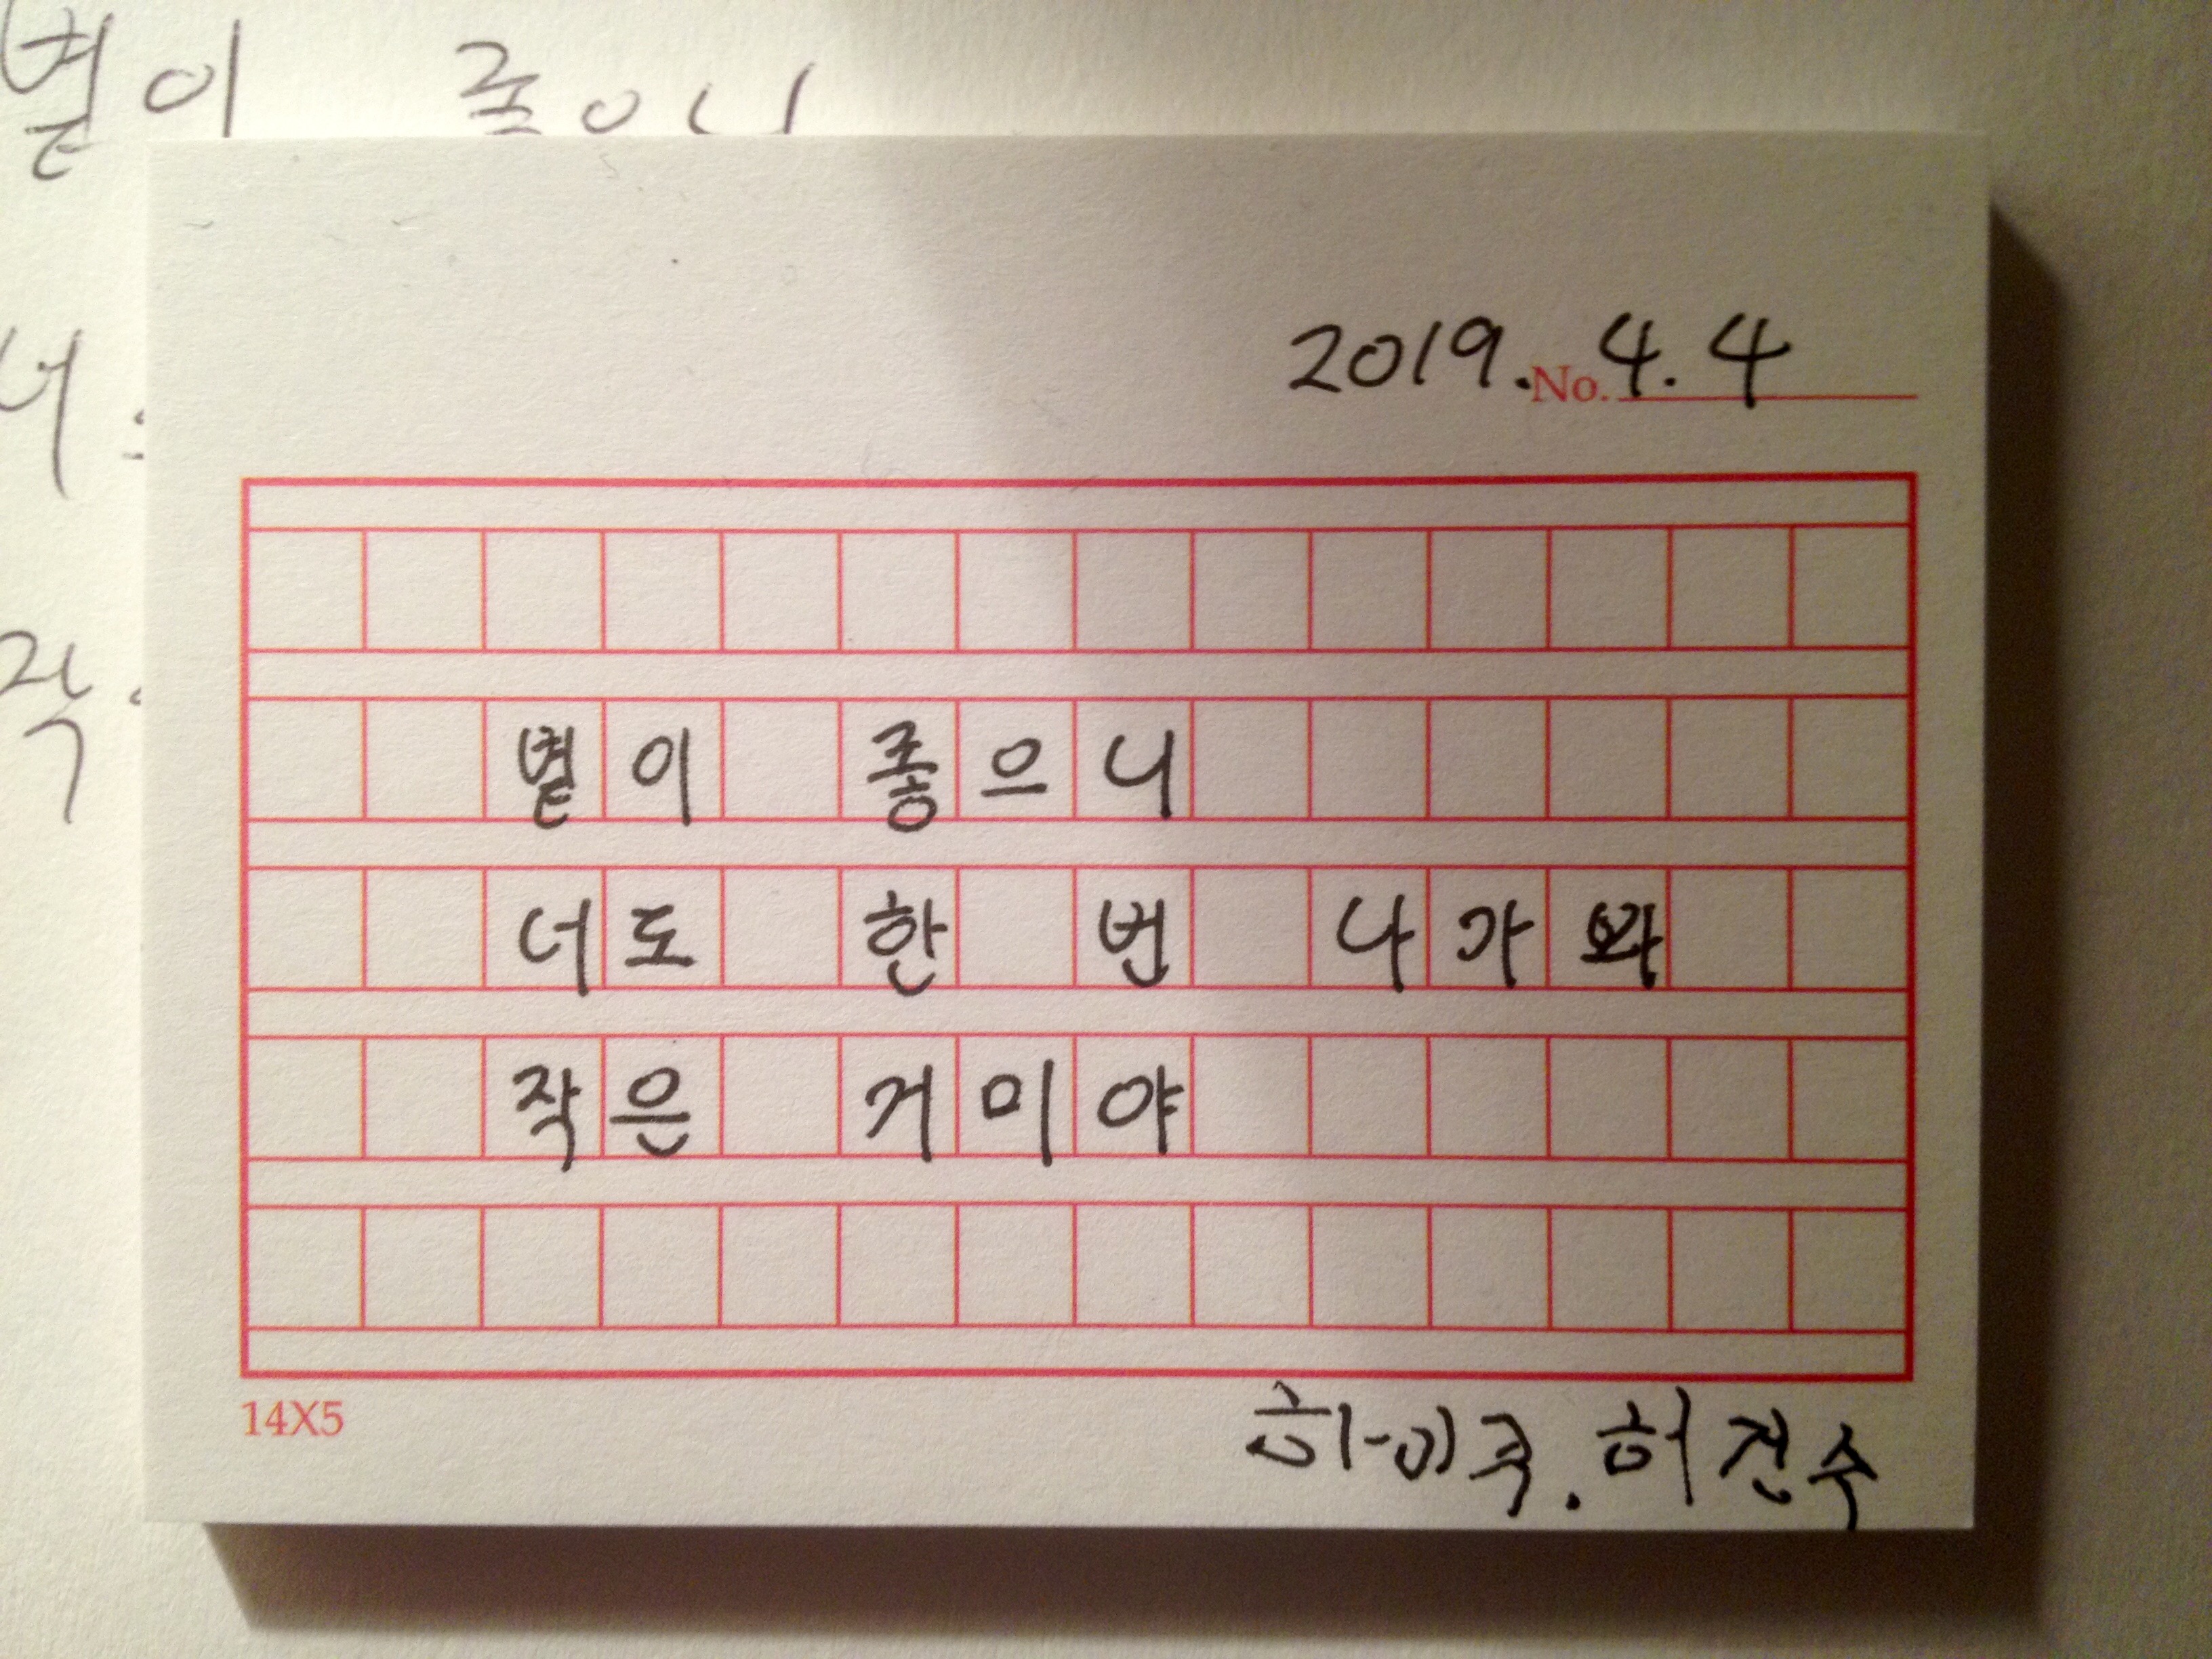 볕이 좋으니
너
작
2019. No. 4. 4
볕이 좋으니
너도 한 번 나가 봐
작은 거미야
14X5
하이쿠. 허건수